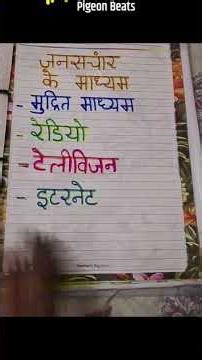 Pigeon Beats
जनसचांर
के माध्यम
- मुद्रित माध्यम
- रेडियो
- टेलीविजन
- इटरनेट